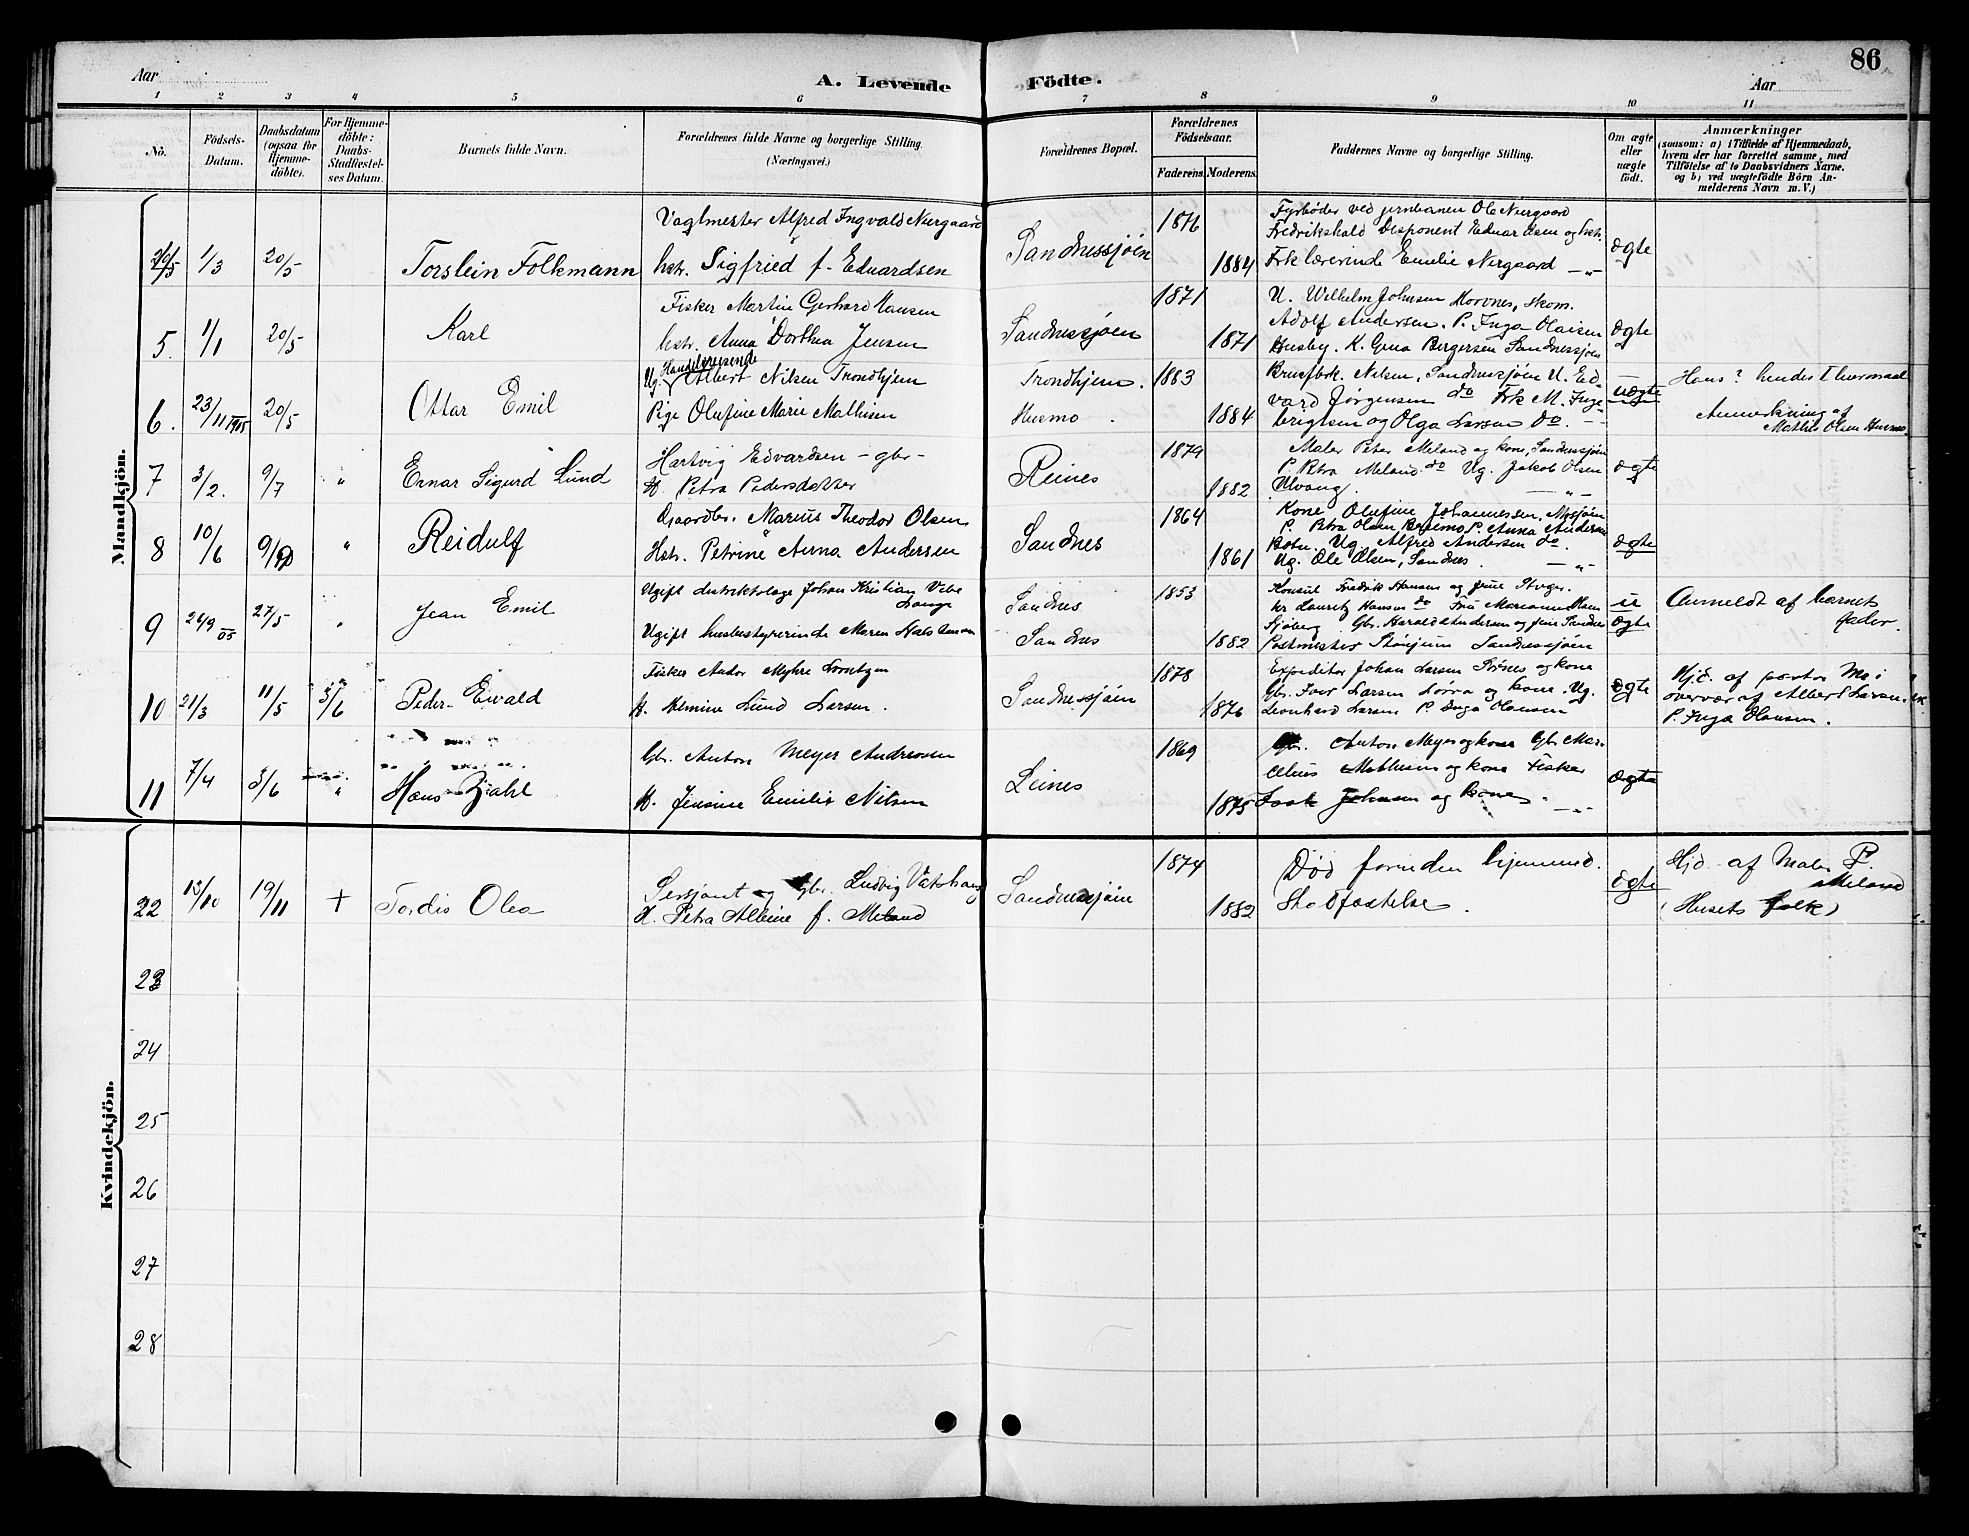 86
Aar
A. Levende Födte.
Aar
1 2 3 4 5 6 7 8 9 10 11
No.
Födsels-Datum.
Daabsdatum (ogsaa for Hjemme-döbte).
For Hjemme-döbte: Daabs-Stadfæstel-ses Datum.
Barnets fulde Navn.
Forældrenes fulde Navne og borgerlige Stilling.
(Næringsvei.)
Forældrenes Bopæl.
Forældrenes Födselsaar.
Faderens. Moderens.
Faddernes Navne og borgerlige Stilling.
Om ægte eller uægte födt.
Anmærkninger
(saasom: a) i Tilfælde af Hjemmedaab,
hvem der har forrettet samme, med
Tilföielse af to Daabsvidners Navne.
og b) ved uægtefödte Börn An-
melderens Navn m. V.)
Mandkjön.
1/3 20/5 Torslein Folkmann
Vagtmester Alfred Ingvald Nergaard
hstr. Sigfried f. Eduardsen
Sandnessjöen 1876 1884
Fyrbøder ved jernbanen Ole Nergaard
Fredrikshald Disponent Eduardsen og hstr.
Frk lærerinde Emilie Nergaard — „ —
ægte
5. 1/1 20/5 Karl
Fisker Martin Gerhard Hansen
hstr. Anna Dorthea Jensen
Sandnessjøen 1871 1871
U. Wilhelm Johnsen Horvnes, skom.
Adolf Andersen. P. Inga Olaisen
Husby. K. Gina Bergersen Sandnessjøen
ægte
6. 23/11 1905 20/5 Ottar Emil
Handelsreisende
Ug. Albert Nilsen Trondhjem
Pige Olufine Marie Mathisen
Trondhjem. 1883
Husmo 1884
Brugsbk. Nilsen, Sandnessjøen U. Ed-
vard Jørgensen do Frk M. Inge-
brigtsen og Olga Larsen do.
uægte
Hans? hendes
Anmerkning af
Mathis Olsen Husmo.
7 3/2. 9/7 „ Ennar Sigurd Lund
Hartvig Edvardsen – gbr –
H. Petra Pedersdatter
Reines 1879 1882
Maler Peter Meland og kone, Sandnessjøen
P. Petra Meland do Ug. Jakob Olsen
Ulvang. — „ —
ægte
8 10/6 9/9 „ Reidulf
Gaardbr. Marius Theodor Olsen
Hstr. Petrine Anna Andersen
Sandnes 1864 1861
Kone Olufine Johannessen, Mosjøen
P. Petra Olsen P. Anna Andersen
Botn. Ug. Alfred Andersen do.
Ug. Ole Olsen, Sandnes. — „ —
ægte
9 26/9 05 27/5 „ Jean Emil
Ugift distriktslæge Johan Kristian Vibe
Lange
Ugift husbestyrerinde Maren
Sandnes 1853
Sandnes 1882
Konsul Fredrik Hansen og frue
hr Lauritz Hansen do Fru Marianne
Sjøberg Gbr. Harald Andersen og frue Sandnes
Postmester Sandnessjøen
u
ægte
Anmeldt af barnets
fader.
10 21/3 11/5 3/6 Peder Ewald
Fisker Andor Myhre Lorentzen
H. Almine Lund Larsen.
Sandnessjøen 1878 1876
Expeditør Johan Larsen og kone
Gbr. Iver Larsen og kone. Ug.
Leonhard Larsen P. Inga Olausen
ægte
Hjd. af pastor Mo i
overvær af Albert Larsen.
P. Inga Olausen.
11 7/4 3/6 „ Hans Zahl
Gbr. Anton Meyer Andreassen
H. Jensine Emilie Nilsen
Leines 1869 1875
Gbr. Anton Meyer og kone Gbr Mar-
elius Mathisen og kone Fisker
Isak Johnsen og kone — „ —
ægte
Kvindekjön.
22 13/10 19/11 + Tordis Olea
Sersjant og Gbr. Ludvig
H. Petra Albine f. Meland
Sandnessjøen 1874 1882
Død forinden hjemmed.
Stadfæstelse.
ægte
Hjd. af Maler P.
Meland
(Husets folk)
23
24
25
26
27
28